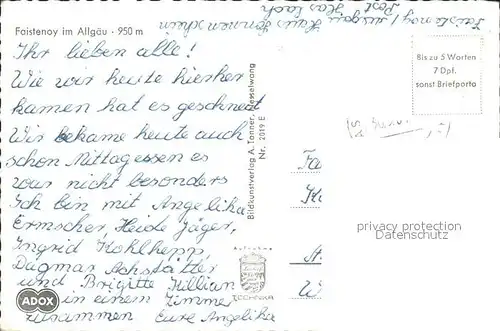 Faistenoy im Allgäu · 950 m
Ihr lieben alle!
Wie wir heute hierher
kamen hat es geschneit
Wir bekame heute auch
schon Mittagessen es
war nicht besonders
Ich bin mit Angelika
Ermscher, Heide Jäger,
Ingrid Kohlhepp,
Dagmar Achstätter
und Brigitte Killian
in einem Zimmer
zusammen Eure Angelika
ADOX
Bildkunstverlag A. Tanner, Nesselwang
Nr. 2019 E
Faistenoy / Allgäu
Haus Sonnenschein
Post Haslach
Bis zu 5 Worten
7 Dpf.
sonst Briefporto
privacy protection
Datenschutz